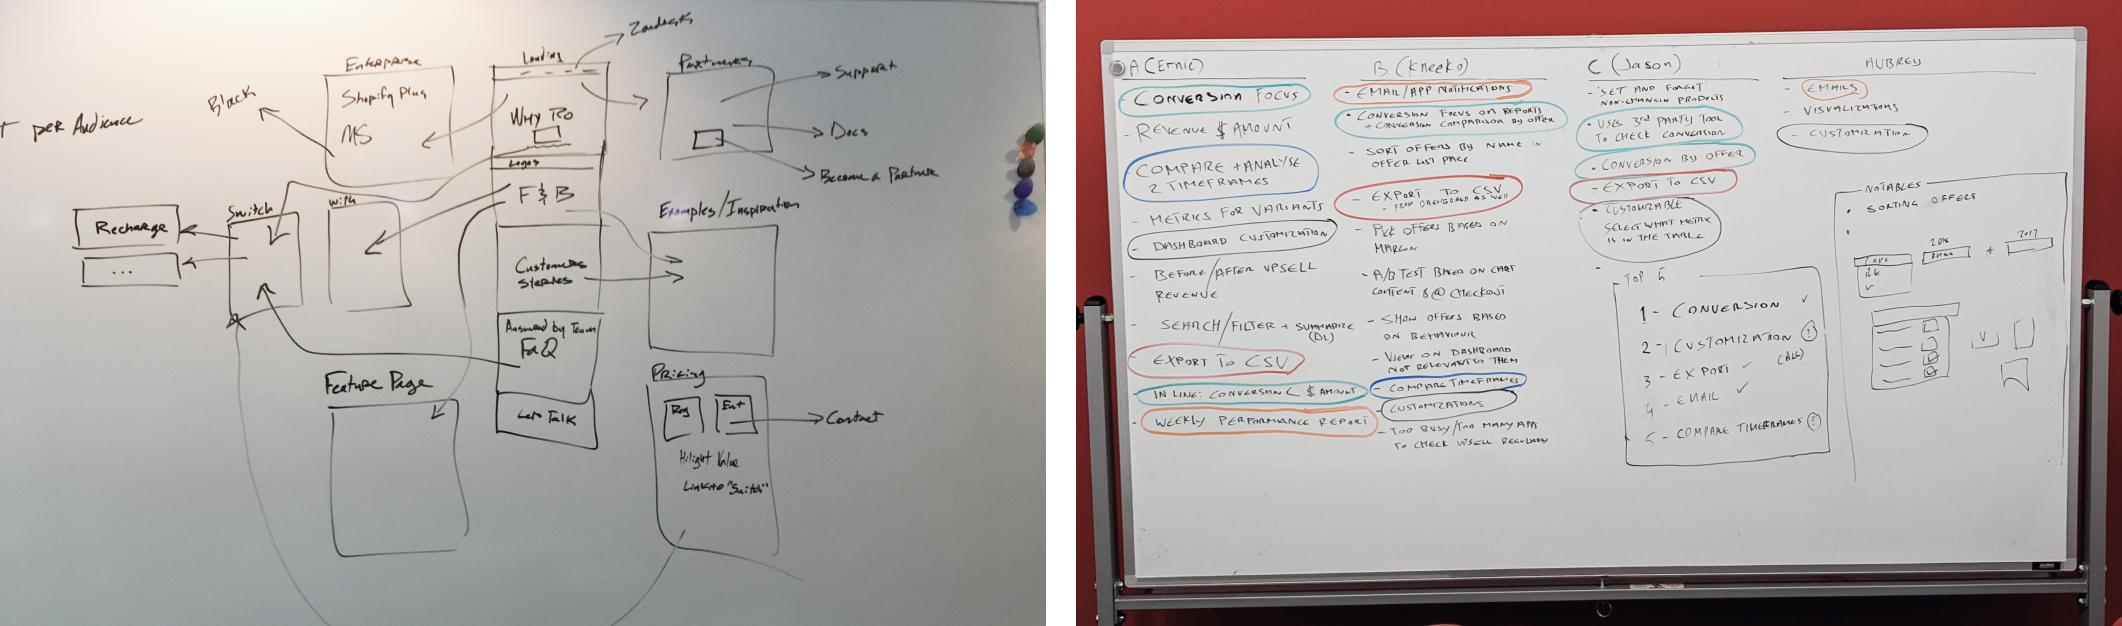 Landing
Zendesk
Enterprise
Shopify Plus
MS
Black
per Audience
Why Ro
Logos
F & B
Customers
stories
Answered by Team
FaQ
Let's Talk
Partners
Support
Docs
Become a Partner
Switch
with
Recharge
...
Examples/Inspiration
Feature Page
Pricing
Reg
Ent
Contact
Hilight Value
Link to "Switch"
A (Ernie)
- CONVERSION FOCUS
- REVENUE $ AMOUNT
COMPARE + ANALYSE
2 TIMEFRAMES
- METRICS FOR VARIANTS
- DASHBOARD CUSTOMIZATION
- BEFORE/AFTER UPSELL
REVENUE
- SEARCH/FILTER + SUMMARIZE
- EXPORT TO CSV
- IN LINE: CONVERSION $ AMOUNT
- WEEKLY PERFORMANCE REPORT
B (Kneeko)
- EMAIL/APP NOTIFICATIONS
• CONVERSION FOCUS ON REPORTS
+ CONVERSION COMPARISON BY OFFER
- SORT OFFERS BY NAME IN
OFFER LIST PAGE
- EXPORT TO CSV
- FROM DASHBOARD AS WELL
- PICK OFFERS BASED ON
MARGIN
- A/B TEST BASED ON CART
CONTENT & @ CHECKOUT
- SHOW OFFERS BASED
ON BEHAVIOUR
- VIEWS ON DASHBOARD
NOT RELEVANT TO THEM
- COMPARE TIMEFRAMES
- CUSTOMIZATIONS
- TOO BUSY/TOO MANY APPS
TO CHECK UPSELL
C (Jason)
- 'SET AND FORGET
PRODUCTS
• USES 3RD PARTY TOOL
TO CHECK CONVERSION
- CONVERSION BY OFFER
- EXPORT TO CSV
• CUSTOMIZABLE
SELECT WHAT METRIC
IS IN THE TABLE
TOP 5
1 - CONVERSION ✓
2 - CUSTOMIZATION (?)
3 - EXPORT ✓ (ALL)
4 - EMAIL ✓
5 - COMPARE TIMEFRAMES (?)
AUBREY
- EMAILS
- VISUALIZATIONS
- CUSTOMIZATION
NOTABLES
• SORTING OFFERS
2016
+
2017